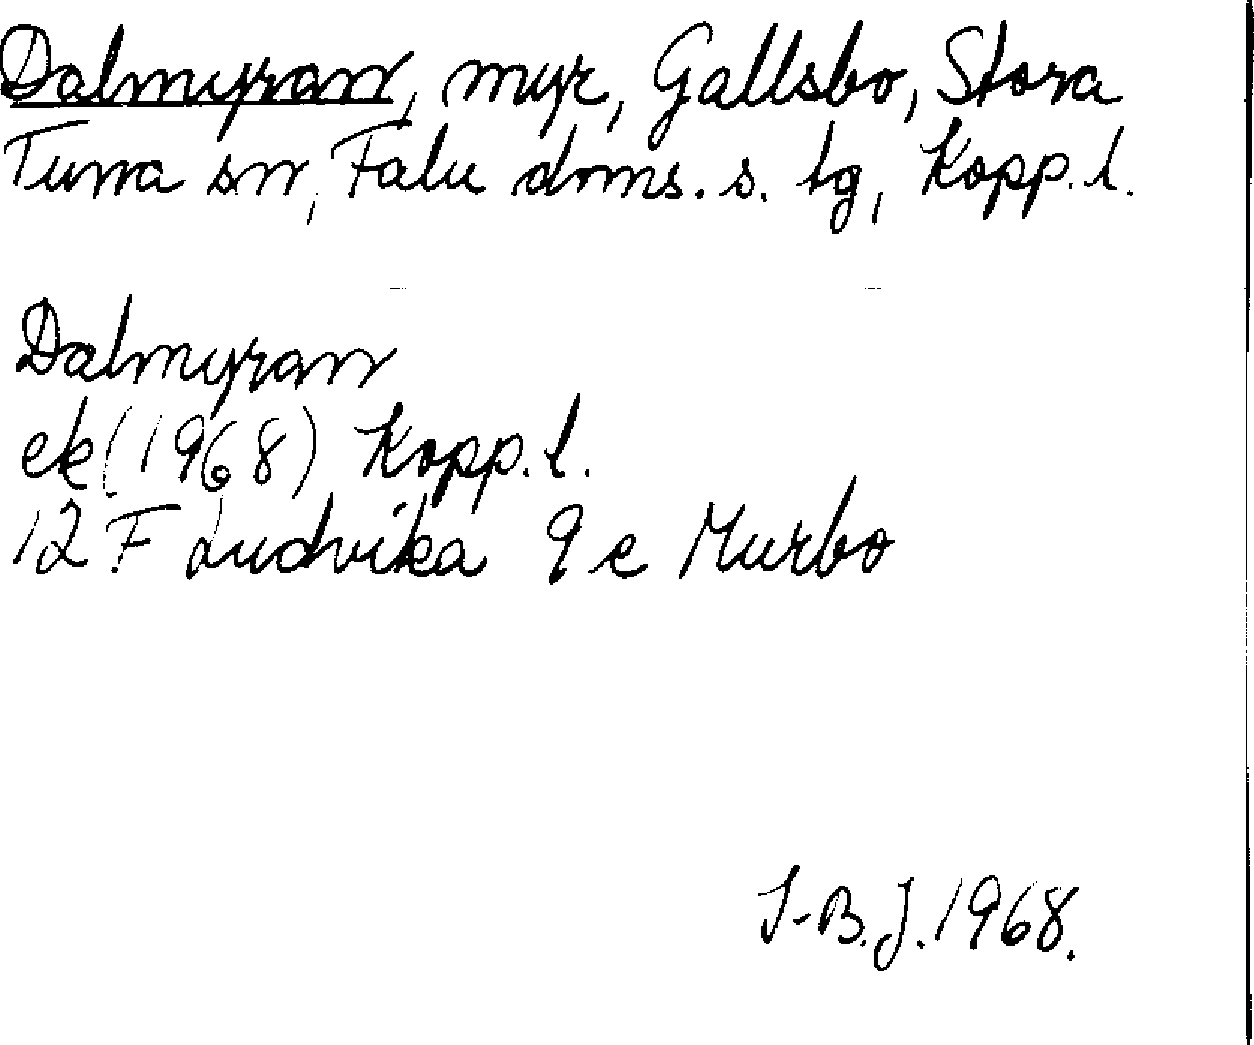 Dalmyran, myr, Gallsbo, Stora
Tuna sn, Falu doms. s. tg, Kopp. l.
Dalmyran
ek (1968) Kopp. l.
12 F Ludvika 9 e Murbo
I-B.J. 1968.